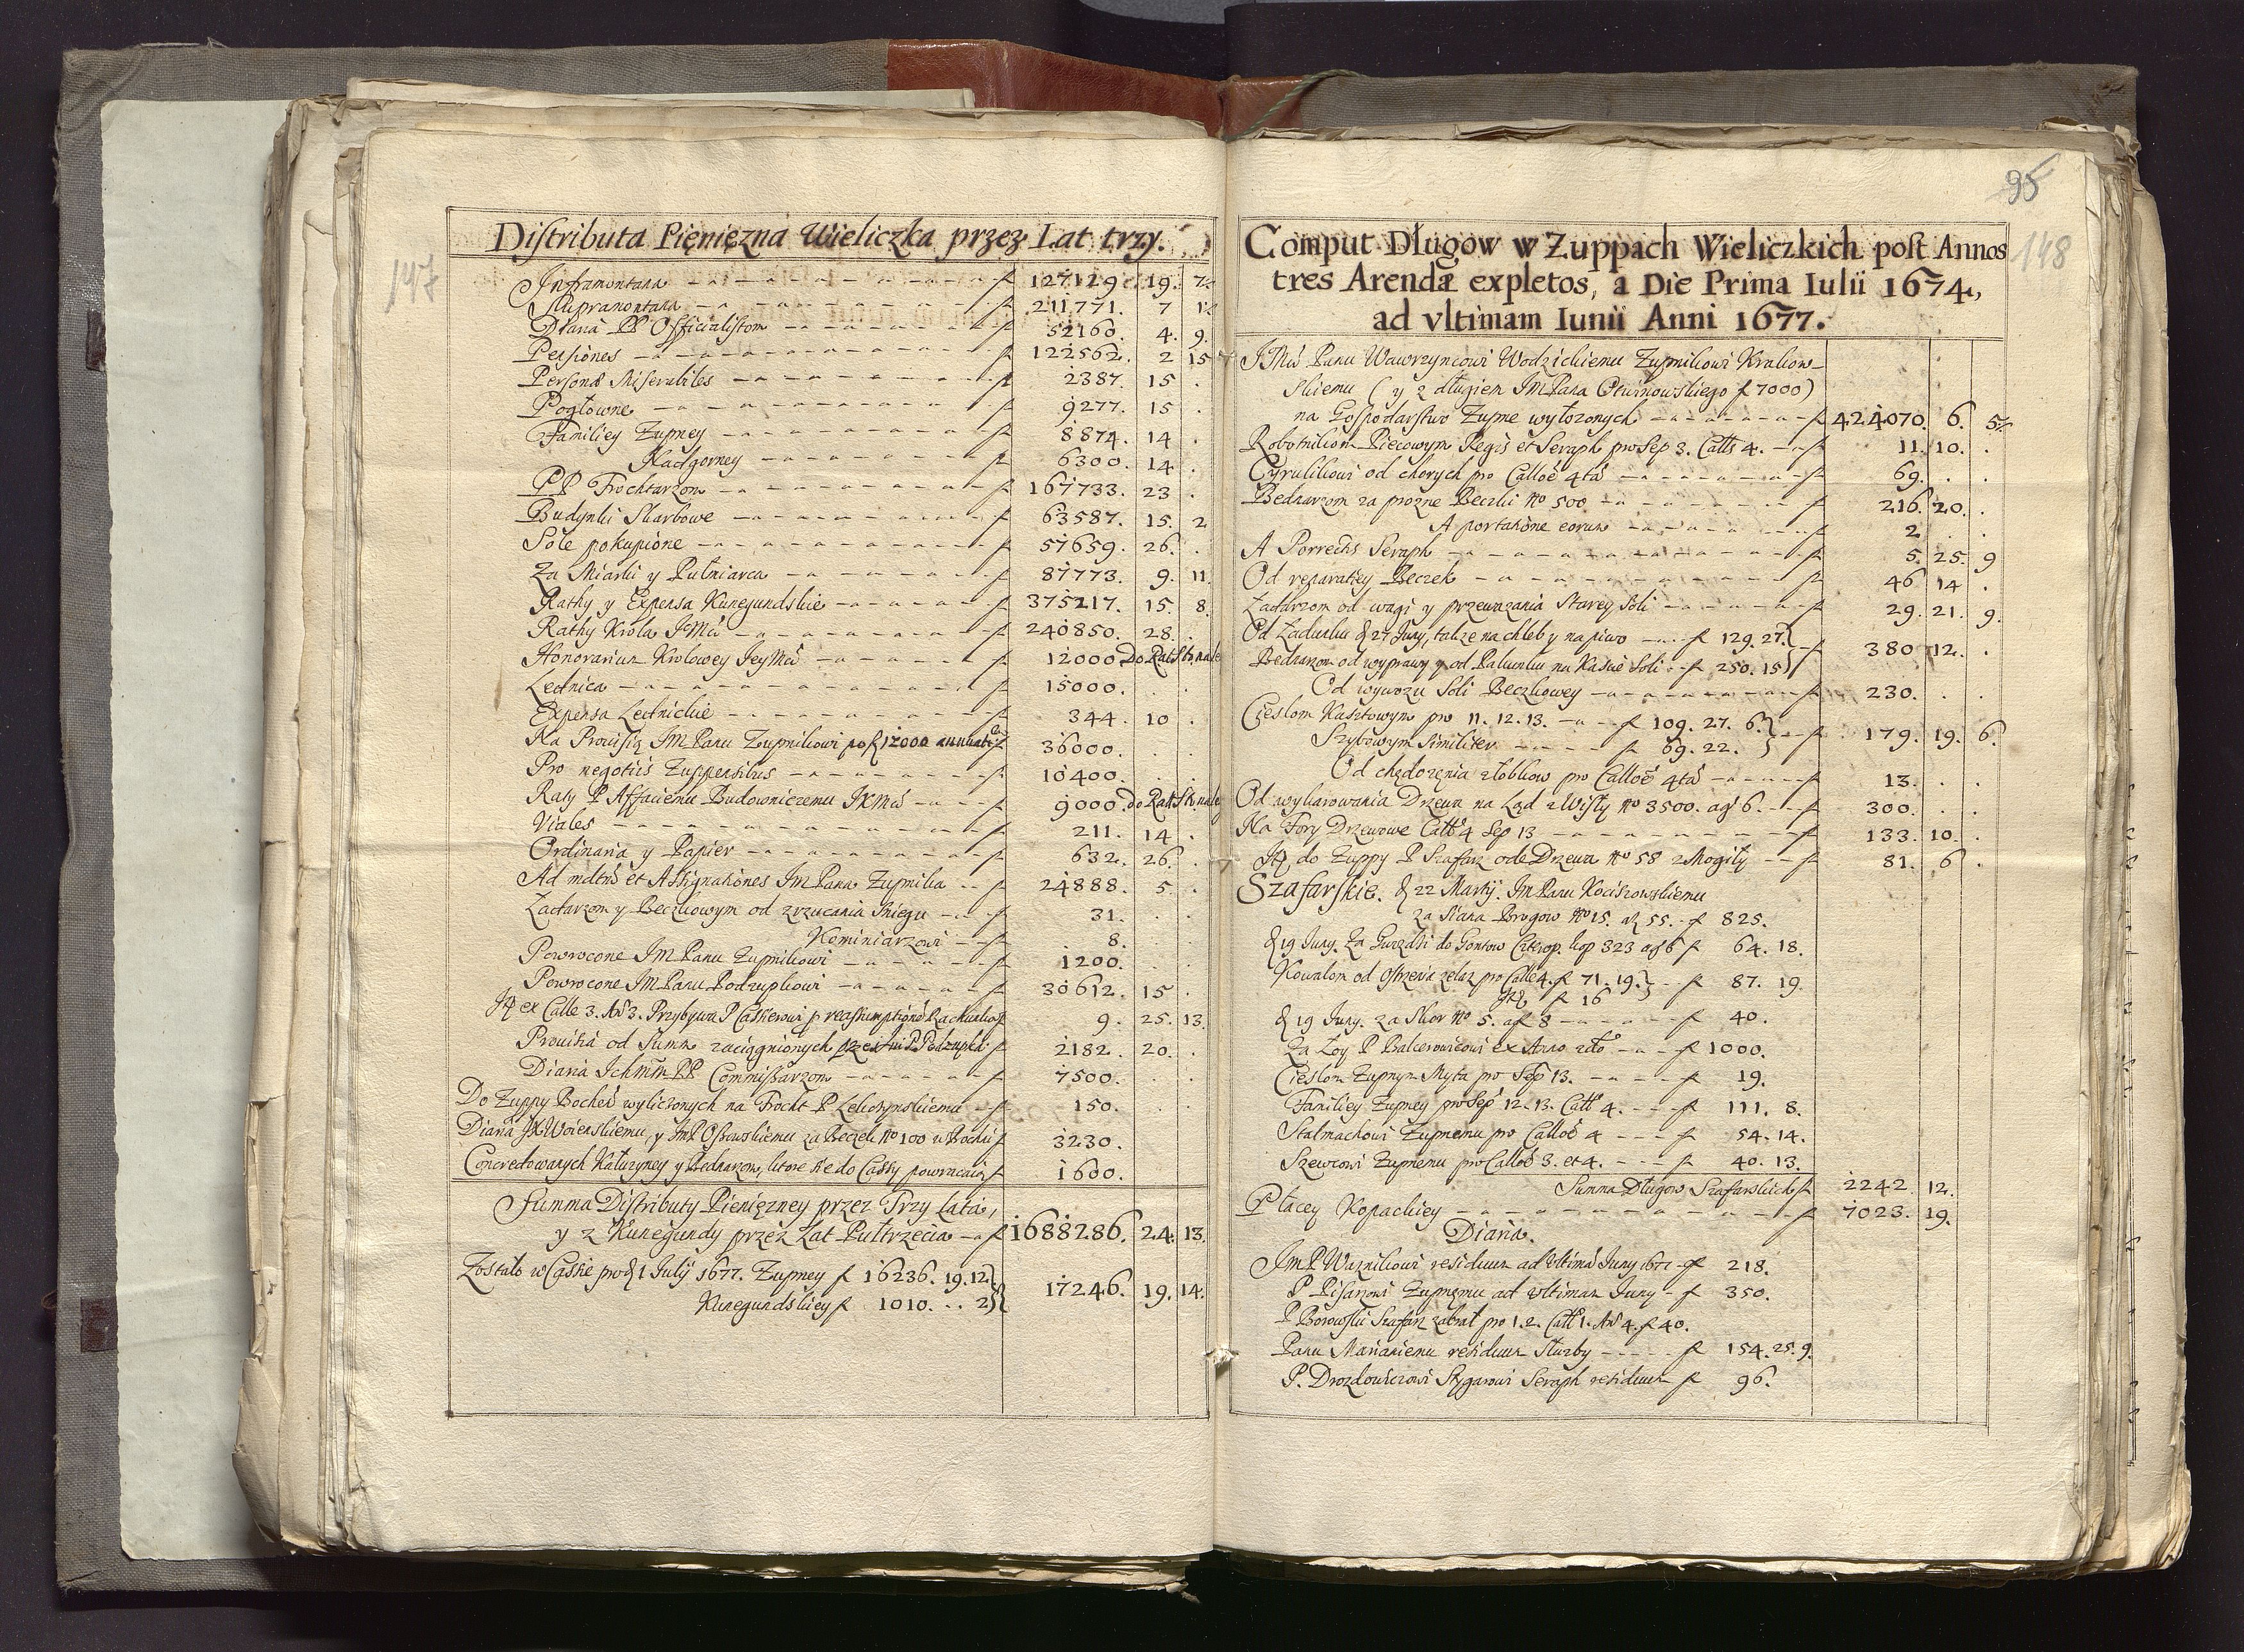 147
Distributa Pięnięzna Wieliczka przez Lat trzy.
Inframontana f 127129. 19. 7½
Supramontana f 211771. 7 1½
Diaria PP Officialistom f 52160. 4. 9.
Pensiones f 122562. 2 15
Personæ Miserabiles f 2387. 15 .
Pogłowne f 9277. 15 .
Familiey Zupney f 8874. 14 .
Nadgorney f 6300. 14 .
PP Frochtarzom f 161733. 23 .
Budynki Skarbowe f 63587. 15. 2
Sole pokupione f 57659. 26. .
Za Miarki y Pułniarca f 87773. 9. 11.
Rathy y Expensa Kunegundskie f 375217. 15. 8.
Rathy Krola JMci f 240850. 28. .
Honorarium Krolowey JeyMci f 12000 Do Rat
Lednica f 15000. . .
Expensa Lednickie f 344. 10 .
Na Prowisią JMPanu Zupnikowi po f 12000 annuati f 36000. . .
Pro negotiis Zuppensibus f 10400. . .
Raty P Affaitemu Budowniczemu JKMci f 9000. do Rat
Viales f 211. 14 .
Ordinaria y Papier f 632. 26. .
Ad et Assignationes JmPana Zupnika f 24888. 5 .
Zactarzom y Beczkowym od zrzucania sniegu f 31. . .
Kominiarzowi f 8. . .
Powrocone JMPanu Zupnikowi f 1200. . .
Powrocone JMPanu Podzupkowi f 30612. 15 .
ex Calle 3. 3. Przybywa P Casserowi f 9. 25. 13.
Prowizia od Summ zaciągnionych f 2182. 20. .
Diaria Ichmm PP Commissarzom f 7500. . .
Do Zuppy Bocheń wyliczonych na Frocht P f 150. . .
Diaria y JmP za Beczek No 100 w Bochni f 3230.
Concredowanych y Bednarzom, ktore sie do Cassy powracaią f 1600.
Summa Distributy Pienięzney przez Trzy Lata,
y z Kunegundy przez Lat Pułtrzecia f 1688286. 24. 13.
Zostało w Cassie pro d 1 Julij 1677. Zupney f 16236. 19. 12
Kunegundskiey f 1010. .. 2 17246. 19. 14.
95
148
Comput Długow w Zuppach Wieliczkich post Annos
tres Arendæ expletos, a Die Prima Iulii 1674,
ad vltimam Iunii Anni 1677.
JMci Panu Wawrzyncowi Wodzickiemu Zupnikowi Krakow-
skiemu (y z długiem JmPana f 7000)
na Gospodarstwo Zupne wyłozonych f 424070. 6. 5½
Robotnikom Piecowym Regis et Seraph pro Sep 3. Calls 4. f 11. 10. .
Cyrulikowi od chorych pro Calloe 4ta f 69. . .
Bednarzom za prozne Beczki No 500 f 216. 20. .
A portatione eorum f 2 . .
A Porrectis Seraph f 5. 25. 9
Od reparatiey Beczek f 46 14 .
Zactarzom od wagi y przewazania Starey Soli f 29. 21. 9.
Od Zadunku d 27 Juny, także na chleb y na piwo f 129. 27.
f 380 12. .
Bednarzom od wyprawy y od Pakunku na Kasnie Soli f 250. 15
Od wywozu Soli Beczkowey f 230. . .
Cieslom Kasztowym pro 11. 12. 13. f 109. 27. 6.
f 179. 19. 6.
Szybowym similiter f 69. 22.
Od chędozenia złobkow pro Calloe 4ta f 13. . .
Od wykarowania Drzewa na Ląd z Wisły No 3500. ag 6. f 300. . .
Na Fory Drzewowe Call 4 Sep 13 f 133. 10. .
do Zuppy P Szafarz ode Drzewa No 58 z Mogiły f 81. 6 .
Szafarskie. d 22 Martij. JmPanu Kociszowskiemu
za Siana Brogow No 15. a f 55. f 825.
d 19 Juny. Za Gwozdzi do Gontow kop 323 ag 6 f 64. 18.
Kowalom od Ostrzenia zelaz pro Calle 4. f 71. 19. f 87. 19.
f 16
d 19 Juny. za Skor No 5. a f 8 f 40.
Za Łoy P Balcerowicowi ex Anno f 1000.
Cieslom Zupnym Myta pro Sep 13. f 19.
Familiey Zupney pro Sep 12. 13. Call 4. f 111. 8.
Stalmachowi Zupnemu pro Calloe 4 f 54. 14.
Szewcowi Zupnemu pro Calloe 3. et 4. f 40. 13.
Summa Długow Szafarskich f 2242. 12.
Płacey Kopackiey f 7023. 19.
Diaria.
JmP Waznikowi residuum ad vltima Juny 1677 f 218.
P Pisarzowi Zupnemu ad vltimam Juny f 350.
P Borowski Szafarz zabrał pro 1. 2. Call 1. 4. f 40.
Panu Marianiemu residuum Słuzby f 154. 25. 9.
P. Drozdowiczowi Stygarowi Seraph residuum f 96.